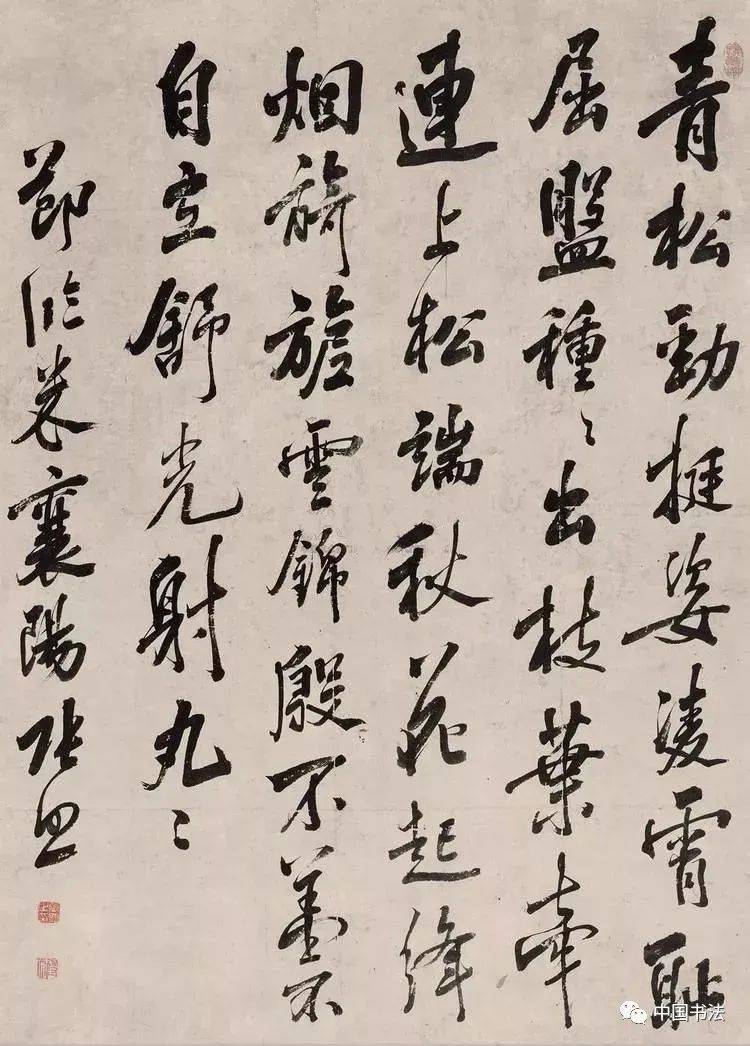 青松勁挺姿凌霄恥
屈盤種〻出枝葉牽
連上松端秋花起絳
烟旖旎雲錦殷不羞不
自立舒光射丸〻
節臨米襄陽張照
中国书法